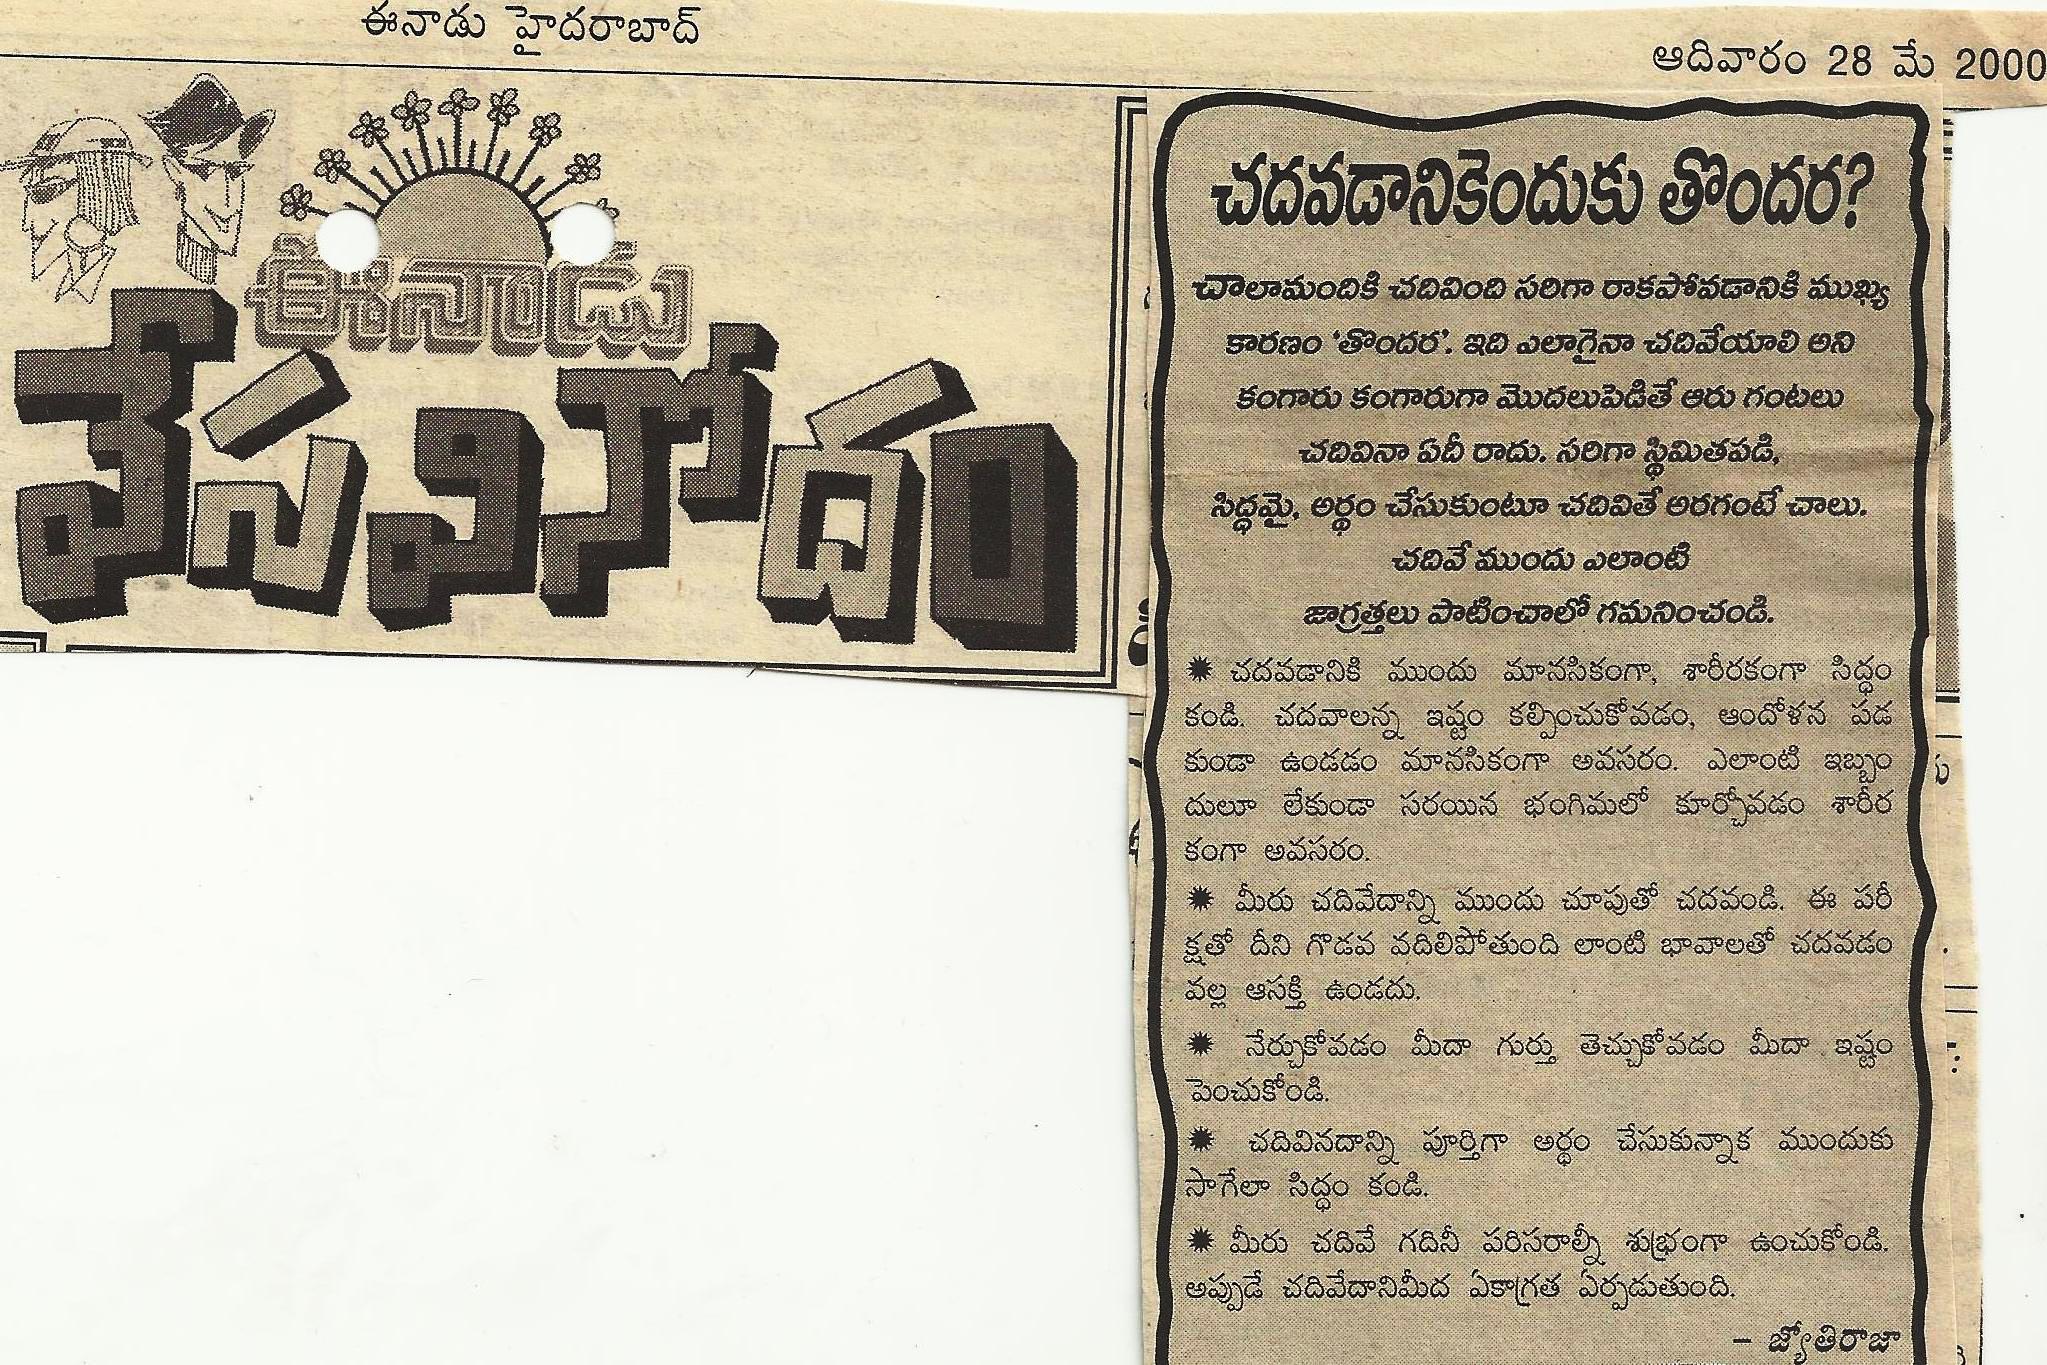 ఈనాడు హైదరాబాద్
ఆదివారం 28 మే 2000
ఈనాడు
వేసవినోదం
చదవడానికెందుకు తొందర?
చాలామందికి చదివింది సరిగా రాకపోవడానికి ముఖ్య
కారణం ‘తొందర’. ఇది ఎలాగైనా చదివేయాలి అని
కంగారు కంగారుగా మొదలుపెడితే ఆరు గంటలు
చదివినా ఏదీ రాదు. సరిగా స్థిమితపడి,
సిద్ధమై, అర్థం చేసుకుంటూ చదివితే అరగంటే చాలు.
చదివే ముందు ఎలాంటి
జాగ్రత్తలు పాటించాలో గమనించండి.
✹ చదవడానికి ముందు మానసికంగా, శారీరకంగా సిద్ధం
కండి. చదవాలన్న ఇష్టం కల్పించుకోవడం, ఆందోళన పడ
కుండా ఉండడం మానసికంగా అవసరం. ఎలాంటి ఇబ్బం
దులూ లేకుండా సరయిన భంగిమలో కూర్చోవడం శారీర
కంగా అవసరం.
✹ మీరు చదివేదాన్ని ముందు చూపుతో చదవండి. ఈ పరీ
క్షతో దీని గొడవ వదిలిపోతుంది లాంటి భావాలతో చదవడం
వల్ల ఆసక్తి ఉండదు.
✹ నేర్చుకోవడం మీదా గుర్తు తెచ్చుకోవడం మీదా ఇష్టం
పెంచుకోండి.
✹ చదివినదాన్ని పూర్తిగా అర్థం చేసుకున్నాక ముందుకు
సాగేలా సిద్ధం కండి.
✹ మీరు చదివే గదినీ పరిసరాల్నీ శుభ్రంగా ఉంచుకోండి.
అప్పుడే చదివేదానిమీద ఏకాగ్రత ఏర్పడుతుంది.
– జ్యోతిరాజా